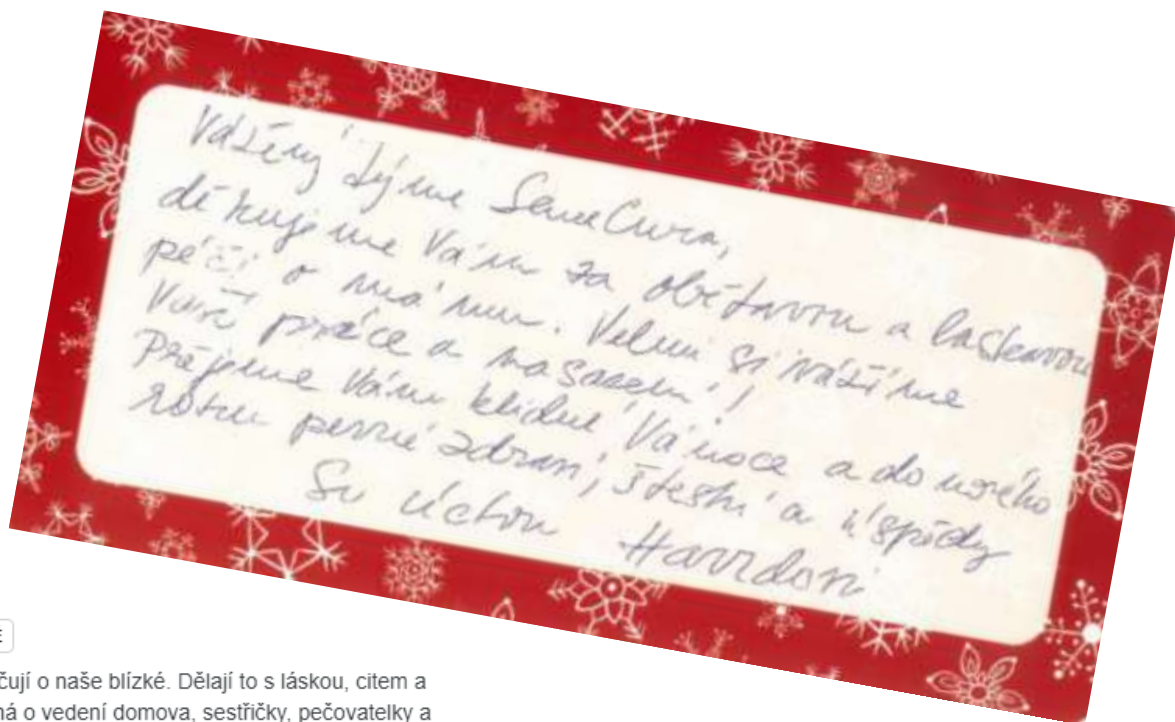 Vážený týme SeneCura,
děkujeme Vám za obětavou a laskavou
péči o mámu. Velmi si vážíme
Vaší práce a nasazení!
Přejeme Vám klidné Vánoce a do nového
roku pevné zdraví, štěstí a úspěchy
S úctou Havrdovi
čují o naše blízké. Dělají to s láskou, citem a
ná o vedení domova, sestřičky, pečovatelky a